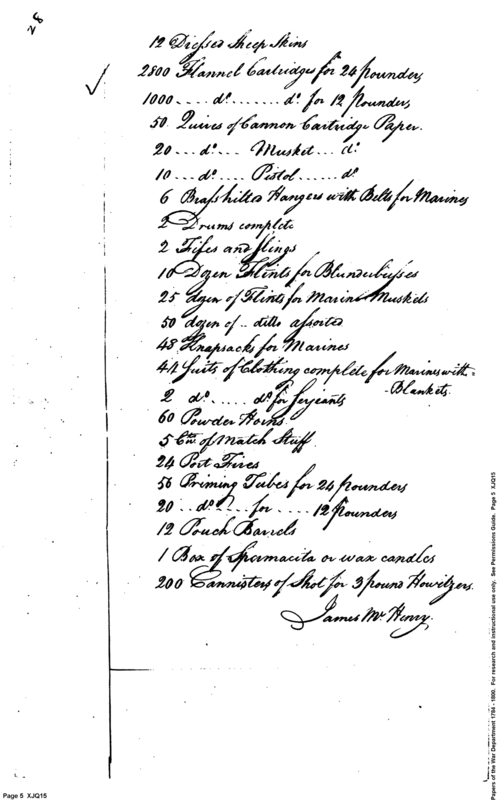 28
12 Dressed Sheep Skins
2800 Flannel Cartridges for 24 pounders
1000 .... do. ....... do. for 12 Pounders
50. Quires of Cannon Cartridge Paper.
20 ... do. ... Musket ... do.
10 ... do. .... Pistol ...... do.
6 Brass hilted Hangers with Belts for Marines
2 Drums complete
2 Fifes and slings
10 Dozen Flints for Blunderbusses
25 dozen of Flints for Marine Muskets
50 dozen of .. ditto assorted
48 Knapsacks for Marines
44 Suits of Clothing complete for Marines with =
- Blankets.
2 do. ..... do. for Serjeants
60 Powder Horns
5 Ctn. of Match Stuff
24 Port Fires
56 Priming Tubes for 24 pounders
20 .. do. .. for .... 12 Pounders
12 Pouch Barrels
1 Box of Spermacita or wax candles
200 Cannisters of Shot for 3 pound Howitzers.
James McHenry.
Page 5 XJQ15
Papers of the War Department 1784 - 1800. For research and instructional use only. See Permissions Guide. Page 5 XJQ15